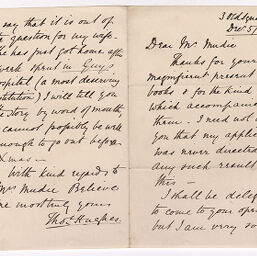 3 Old Squ
Dec 5/
Dear Mr Mudie
Thanks for your
magnificent present
books & for the kind
which accompanie
them. I need not
you that my applic
was never directed
any such result
this —
I shall be deleg
to come to your ope
but I am very so
say that it is out of
question for my wife.
has just got home after
week spent in Guys
ospital (a most deserving
stitution) I will tell you
story by word of mouth,
cannot possibly be well
enough to go out before
Xmas —
With kind regards to
Mrs Mudie Believe
me most truly yours
Thos. Hughes.